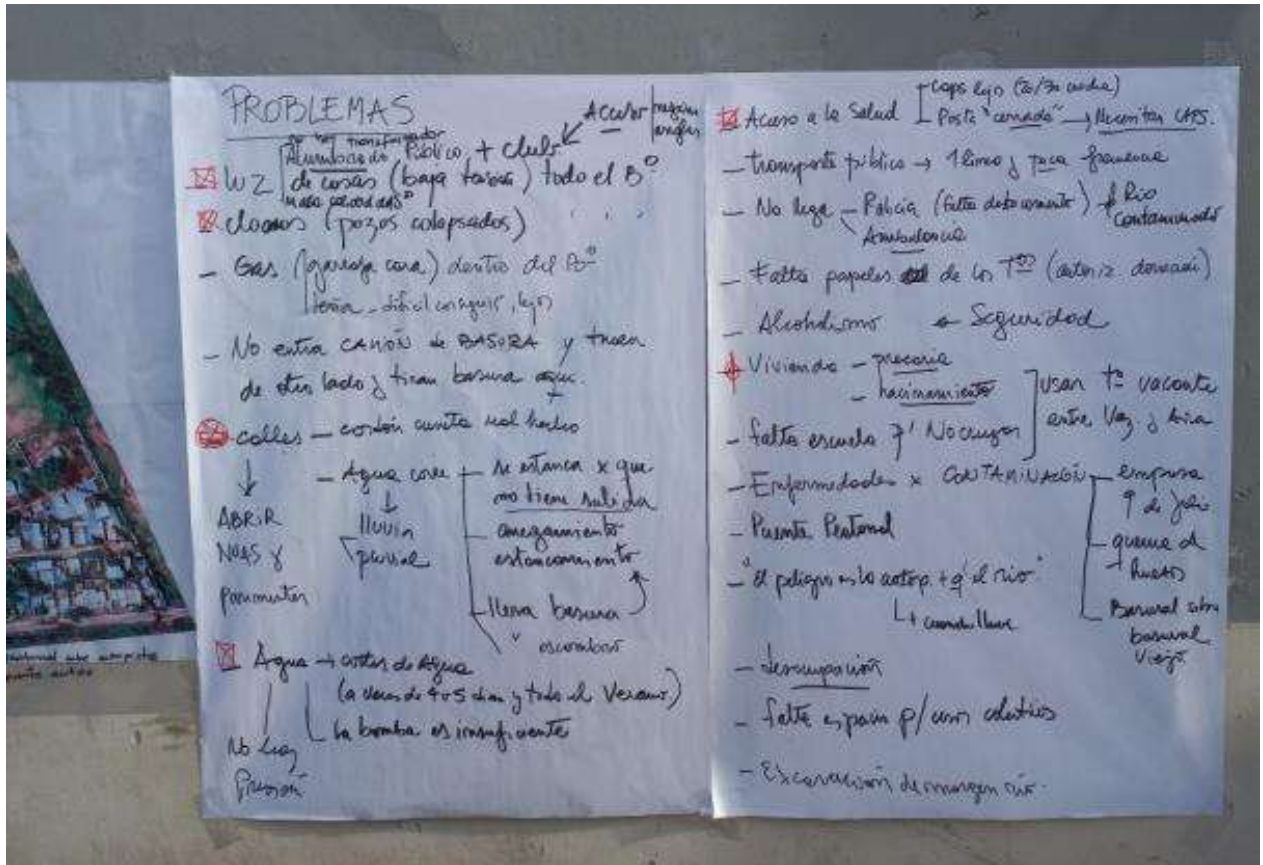 PROBLEMAS
Acceso
transformador
Alumbrado Público + club
LUZ de casas (baja tensión) todo el Bº
cloacas (pozos colapsados)
- Gas (garrafa cara) dentro del Bº
leña - difícil conseguir, lejos
- No entra CAMIÓN de BASURA y traen
de otro lado y tiran basura aquí.
calles - cordón cuneta mal hecho
ABRIR
NUAS y
Pavimentar
- Agua corre
lluvia
- se estanca x que
no tiene salida
- anegamiento
estancamiento
- lleva basura
" escombros
Agua → cortes de Agua
(a veces de 4 o 5 días y todo el Verano)
la bomba es insuficiente
No hay
Presión
Acceso a la Salud
Caps lejos
Posta "cerrada" → Necesitan CAPS.
- transporte público → 1 línea y poca frecuencia
- No llega - Policía (falta destacamento)
Ambulancia
Río
Contaminado
- Falta papeles de los
- Alcoholismo
Seguridad
Vivienda - precaria
- hacinamiento
usar tº vacante
entre
- falta escuela
No cruzar
- Enfermedades x CONTAMINACIÓN
- empresa
9 de Julio
- quema d
huesos
- Basural sobre
basural
viejo.
- Puente Peatonal
- "el peligro es la autop. + q' el río"
cuando llueve
- desocupación
- falta espacio p/ usos colectivos
- Excavación de margen río.